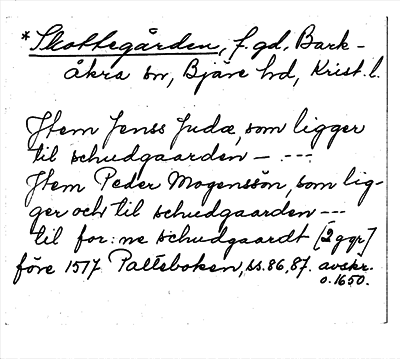 *Skottegården, f. gd, Bark-
åkra sn, Bjäre hd, Krist. l.
Jtem Jenss Juda, som ligger
til schudgaarden — - - -
Jtem Peder Mogenssön, som lig-
ger och til schudgaarden - - -
til for: ne schudgaardt [2 ggr]
före 1517 Palteboken, ss. 86, 87. avskr.
o. 1650.